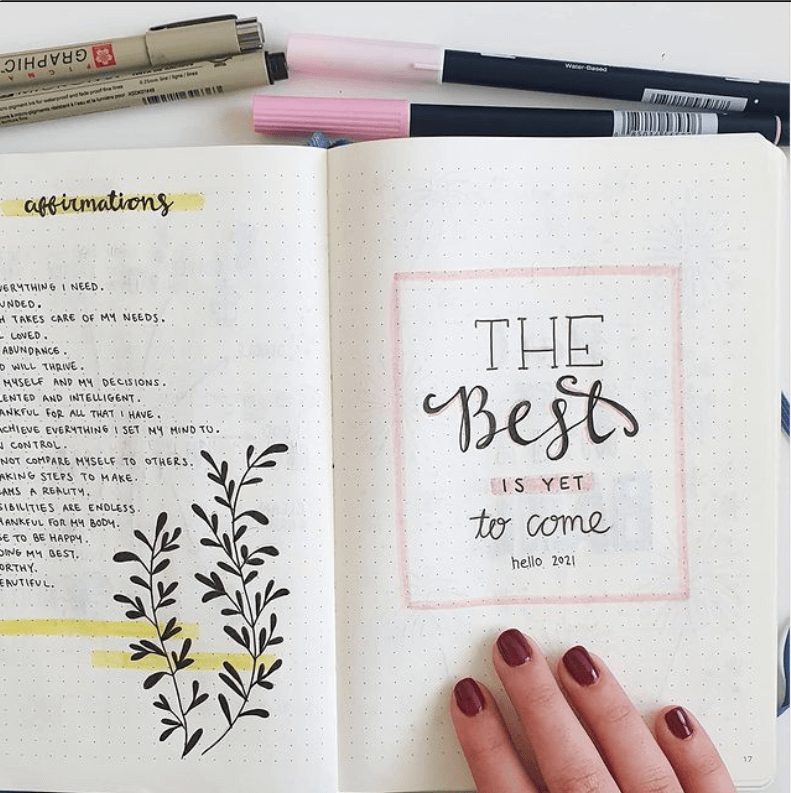 GRAPHIC
Water-Based
affirmations
EVERYTHING I NEED.
UNDED.
H TAKES CARE OF MY NEEDS.
LOVED.
ABUNDANCE.
WILL THRIVE.
MYSELF AND MY DECISIONS.
LENTED AND INTELLIGENT.
ANKFUL FOR ALL THAT I HAVE.
ACHIEVE EVERYTHING I SET MY MIND TO.
CONTROL.
NOT COMPARE MYSELF TO OTHERS.
AKING STEPS TO MAKE.
AMS A REALITY.
SIBILITIES ARE ENDLESS.
HANKFUL FOR MY BODY.
SE TO BE HAPPY.
OING MY BEST.
ORTHY.
EAUTIFUL.
THE
Best
IS YET
to come
hello 2021
17